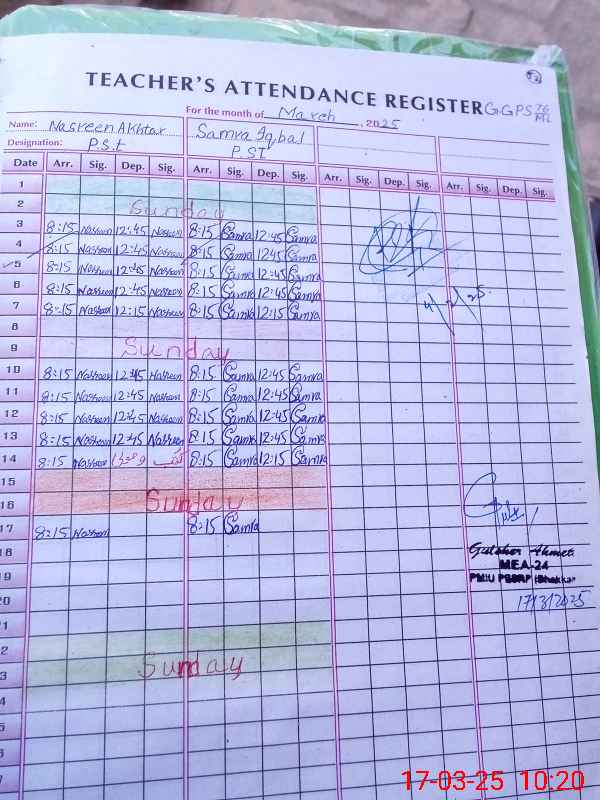 TEACHER'S ATTENDANCE REGISTER GGPS 76 ML
For the month of March, 2025
Name: Nasreen Akhtar Samra Iqbal
Designation: P.S.t P.ST
Date Arr. Sig. Dep. Sig. Arr. Sig. Dep. Sig. Arr. Sig. Dep. Sig. Arr. Sig. Dep. Sig.
1
2 Sunday
3 8:15 Nasreen 12:45 Nasreen 8:15 Samra 12:45 Samra
4 8:15 Nasreen 12:45 Nasreen 8:15 Samra 12:45 Samra
5 8:15 Nasreen 12:45 Nasreen 8:15 Samra 12:45 Samra
6 8:15 Nasreen 12:45 Nasreen 8:15 Samra 12:45 Samra
7 8:15 Nasreen 12:15 Nasreen 8:15 Samra 12:15 Samra
8
9 Sunday
10 8:15 Nasreen 12:45 Nasreen 8:15 Samra 12:45 Samra
11 8:15 Nasreen 12:45 Nasreen 8:15 Samra 12:45 Samra
12 8:15 Nasreen 12:45 Nasreen 8:15 Samra 12:45 Samra
13 8:15 Nasreen 12:45 Nasreen 8:15 Samra 12:45 Samra
14 8:15 Nasreen 8:15 Samra 12:15 Samra
15
16 Sunday
17 8:15 Nasreen 8:15 Samra
18
MEA-24
19
PMIU PESRP Bhakkar
20
17/3/2025
1
2
Sunday
3
4
5
6
7
17-03-25 10:20